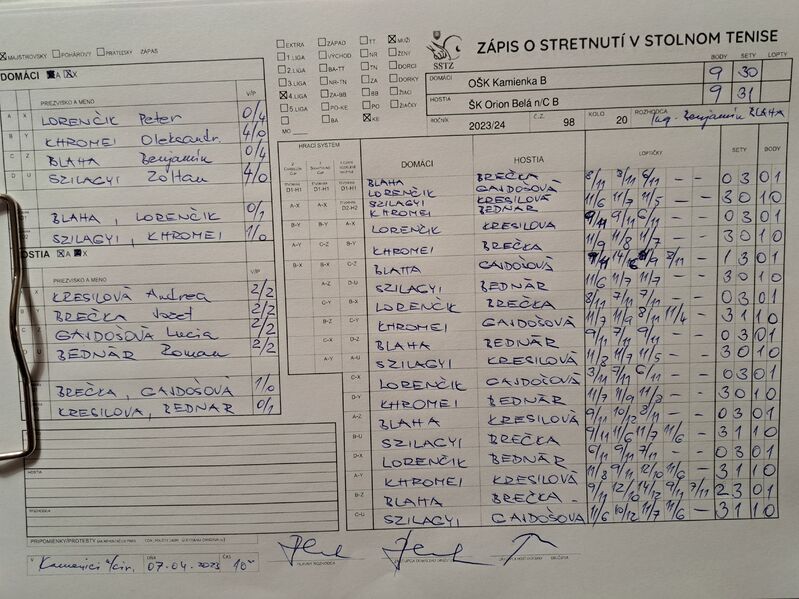 MAJSTROVSKÝ POHÁROVÝ PRIATEĽSKÝ ZÁPAS
ZÁPIS O STRETNUTÍ V STOLNOM TENISE
SSTZ
EXTRA ZÁPAD TT MUŽI
1.LIGA VÝCHOD NR ŽENY
2.LIGA BA-TT TN DORCI
3.LIGA NR-TN ZA DORKY
4.LIGA ZA-BB BB ŽIACI
5.LIGA PO-KE PO ŽIAČKY
BA KE
MO
BODY SETY LOPTY
DOMÁCI OŠK Kamienka B 9 30
HOSTIA ŠK Orion Belá n/C B 9 31
ROČNÍK 2023/24 Č.Z. 98 KOLO 20 ROZHODCA Ing. Benjamín BLAHA
DOMÁCI A X
PRIEZVISKO A MENO V/P
A X LORENČIK Peter 0/4
B Y KHROMEI Oleksandr. 4/0
C Z BLAHA Benjamín 0/4
D U SZILAGYI Zoltan 4/0
BLAHA, LORENČIK 0/1
SZILAGYI, KHROMEI 1/0
HOSTIA A X
PRIEZVISKO A MENO V/P
KRESILOVÁ Andrea 2/2
BREČKA Jozef 2/2
GAJDOŠOVÁ Lucia 2/2
BEDNÁR Roman 2/2
BREČKA, GAJDOŠOVÁ 1/0
KRESILOVA, BEDNÁR 0/1
HRACÍ SYSTÉM DOMÁCI HOSTIA LOPTIČKY SETY BODY
BLAHA LORENČIK BREČKA GAJDOŠOVÁ 8/11 8/11 6/11 – – 0 3 0 1
SZILAGYI KHROMEI KRESILOVÁ BEDNÁR 11/6 11/7 11/5 – – 3 0 1 0
LORENČIK KRESILOVA 9/11 9/11 6/11 – – 0 3 0 1
KHROMEI BREČKA 11/9 11/8 11/7 – – 3 0 1 0
BLAHA GAJDOŠOVÁ – 1 3 0 1
SZILAGYI BEDNÁR 11/6 11/7 11/7 – – 3 0 1 0
LORENČIK BREČKA 8/11 7/11 7/11 – – 0 3 0 1
KHROMEI GAJDOŠOVÁ 11/7 11/9 8/11 11/4 – 3 1 1 0
BLAHA BEDNÁR 9/11 7/11 9/11 – – 0 3 0 1
SZILAGYI KRESILOVÁ 11/8 11/7 11/5 – – 3 0 1 0
LORENČIK GAJDOŠOVÁ 3/11 7/11 6/11 – – 0 3 0 1
KHROMEI BEDNÁR 11/7 11/9 11/7 – – 3 0 1 0
BLAHA KRESILOVÁ 9/11 10/12 8/11 – – 0 3 0 1
SZILAGYI BREČKA 7/11 11/6 11/7 11/6 – 3 1 1 0
LORENČIK BEDNÁR 6/11 9/11 7/11 – – 0 3 0 1
KHROMEI KRESILOVÁ 11/8 9/11 12/10 11/6 – 3 1 1 0
BLAHA BREČKA 9/11 12/10 14/12 9/11 7/11 2 3 0 1
SZILAGYI GAJDOŠOVA 11/6 10/12 11/7 11/6 – 3 1 1 0
HOSTIA
PRIPOMIENKY/PROTESTY
V Kamenici n/cir. DŇA 07.04.2023 ČAS
HLAVNÝ ROZHODCA